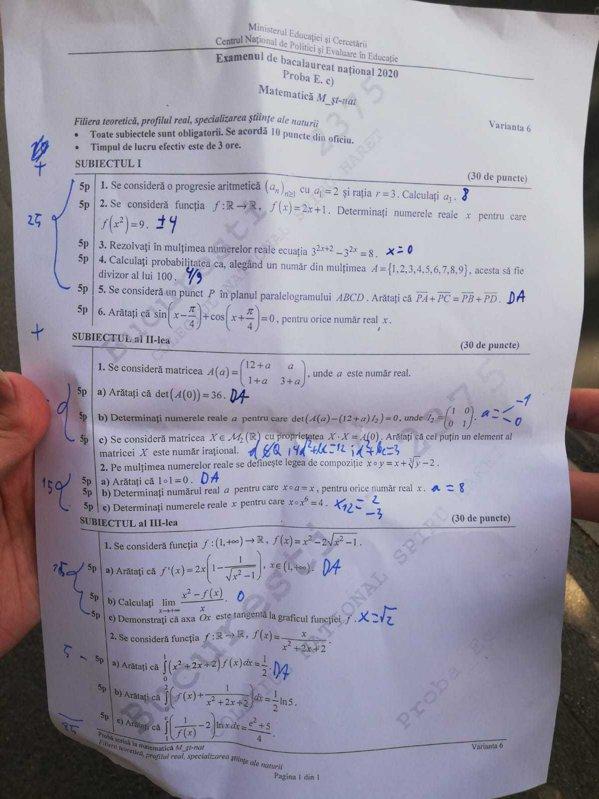 Ministerul Educației și Cercetării
Centrul Național de Politici și Evaluare în Educație
Examenul de bacalaureat național 2020
Proba E. c)
Matematică M_șt-nat
Varianta 6
Filiera teoretică, profilul real, specializarea științe ale naturii
• Toate subiectele sunt obligatorii. Se acordă 10 puncte din oficiu.
• Timpul de lucru efectiv este de 3 ore.
SUBIECTUL I (30 de puncte)
5p 1. Se consideră o progresie aritmetică (aₙ)ₙ≥₁ cu a₁ = 2 și rația r = 3. Calculați a₃. 8
5p 2. Se consideră funcția f : ℝ → ℝ, f(x) = 2x + 1. Determinați numerele reale x pentru care
f(x²) = 9. ±4
25
5p 3. Rezolvați în mulțimea numerelor reale ecuația 3^(2x+2) − 3^(2x) = 8. x=0
5p 4. Calculați probabilitatea ca, alegând un număr din mulțimea A = {1,2,3,4,5,6,7,8,9}, acesta să fie
divizor al lui 100. 4/9
5p 5. Se consideră un punct P în planul paralelogramului ABCD. Arătați că PA + PC = PB + PD. DA
5p 6. Arătați că sin(x − π/4) + cos(x + π/4) = 0, pentru orice număr real x.
SUBIECTUL al II-lea (30 de puncte)
1. Se consideră matricea A(a) = (12+a a; 1+a 3+a), unde a este număr real.
5p a) Arătați că det(A(0)) = 36. DA
5p b) Determinați numerele reale a pentru care det(A(a) − (12+a)I₂) = 0, unde I₂ = (1 0; 0 1). a= -1 0
5p c) Se consideră matricea X ∈ M₂(ℝ) cu proprietatea X · X = A(0). Arătați că cel puțin un element al
matricei X este număr irațional.
2. Pe mulțimea numerelor reale se definește legea de compoziție x∘y = x + ∛y − 2.
15
5p a) Arătați că 1∘1 = 0. DA
5p b) Determinați numărul real a pentru care x∘a = x, pentru orice număr real x. a = 8
5p c) Determinați numerele reale x pentru care x∘x⁶ = 4. x12= 2 -3
SUBIECTUL al III-lea (30 de puncte)
1. Se consideră funcția f : (1,+∞) → ℝ, f(x) = x² − 2√(x² − 1).
5p a) Arătați că f'(x) = 2x(1 − 1/√(x² − 1)), x ∈ (1,+∞). DA
5p b) Calculați lim x→+∞ (x² − f(x))/x. 0
5p c) Demonstrați că axa Ox este tangentă la graficul funcției f. x=√2
2. Se consideră funcția f : ℝ → ℝ, f(x) = x/(x² + 2x + 2).
5 -
5p a) Arătați că ∫₀¹ (x² + 2x + 2) f(x) dx = 1/2. DA
5p b) Arătați că ∫ (f(x) + 1/(x² + 2x + 2)) dx = 1/2 ln 5.
5p c) Arătați că ∫₁ᵉ (1/f(x) − 2) ln x dx = (e² + 5)/4.
Probă scrisă la matematică M_șt-nat Varianta 6
Filiera teoretică, profilul real, specializarea științe ale naturii
Pagina 1 din 1